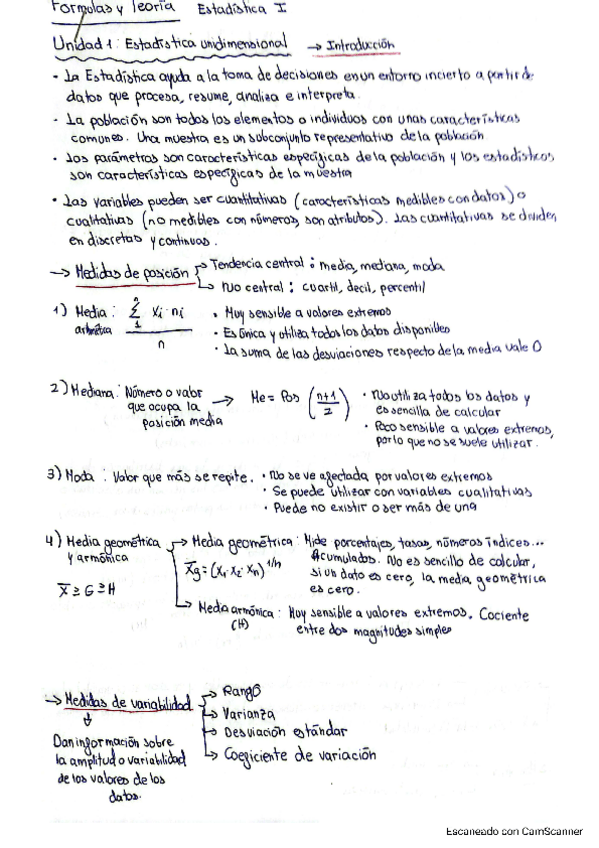 Formulas y Teoría Estadística I
Unidad 1: Estadística unidimensional → Introducción
• La Estadística ayuda a la toma de decisiones en un entorno incierto a partir de
datos que procesa, resume, analiza e interpreta.
• La población son todos los elementos o individuos con unas características
comunes. Una muestra es un subconjunto representativo de la población
• Los parámetros son características específicas de la población y los estadísticos
son características específicas de la muestra
• Las variables pueden ser cuantitativas (características medibles con datos) o
cualitativas (no medibles con números, son atributos). Las cuantitativas se dividen
en discretas y continuas.
→ Medidas de posición → Tendencia central: media, mediana, moda
↳ No central: cuartil, decil, percentil
1) Media: n Σ 1 xi · ni • Muy sensible a valores extremos
aritmética n • Es única y utiliza todos los datos disponibles
• La suma de las desviaciones respecto de la media vale 0
2) Mediana: Número o valor → Me = Pos (n+1/2) • No utiliza todos los datos y
que ocupa la es sencilla de calcular
posición media • Poco sensible a valores extremos,
por lo que no se suele utilizar.
3) Moda: Valor que más se repite. • No se ve afectada por valores extremos
• Se puede utilizar con variables cualitativas
• Puede no existir o ser más de una
4) Media geométrica → Media geométrica: Mide porcentajes, tasas, números índices...
y armónica X̄g = (x1 · x2 · xn)^1/n Acumulados. No es sencillo de calcular,
si un dato es cero, la media geométrica
X̄ ≥ G ≥ H es cero.
↳ Media armónica: Muy sensible a valores extremos. Cociente
(H) entre dos magnitudes simples
→ Medidas de variabilidad → Rango
↓ → Varianza
Dan información sobre → Desviación estándar
la amplitud o variabilidad ↳ Coeficiente de variación
de los valores de los
datos.
Escaneado con CamScanner